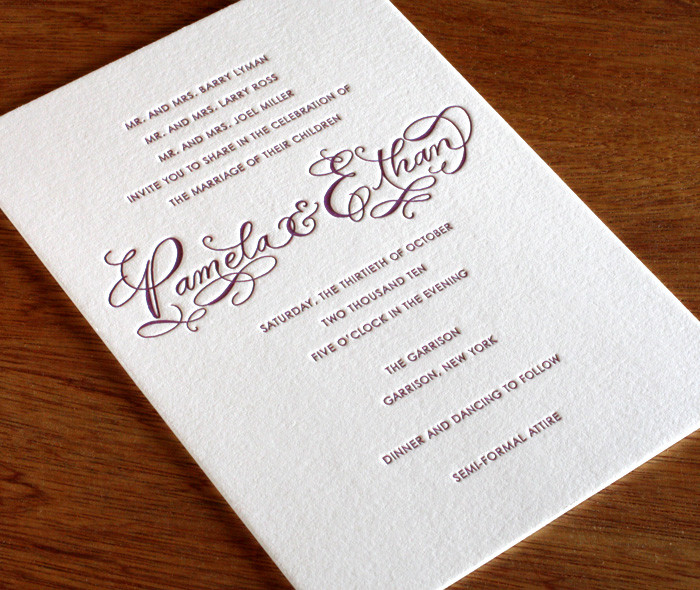 MR. AND MRS. BARRY LYMAN
MR. AND MRS. LARRY ROSS
MR. AND MRS. JOEL MILLER
INVITE YOU TO SHARE IN THE CELEBRATION OF
THE MARRIAGE OF THEIR CHILDREN
Pamela & Ethan
SATURDAY, THE THIRTIETH OF OCTOBER
TWO THOUSAND TEN
FIVE O'CLOCK IN THE EVENING
THE GARRISON
GARRISON, NEW YORK
DINNER AND DANCING TO FOLLOW
SEMI-FORMAL ATTIRE